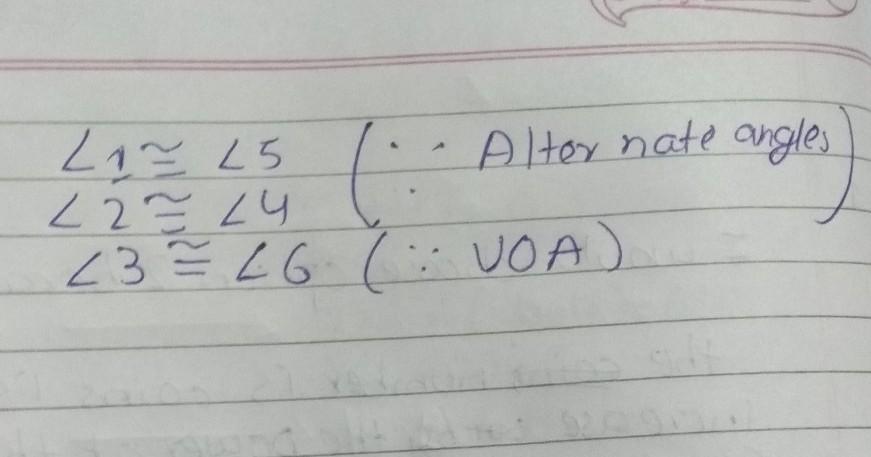 ∠1 ≅ ∠5 (∵ Alternate angles)
∠2 ≅ ∠4
∠3 ≅ ∠6 (∵ VOA)